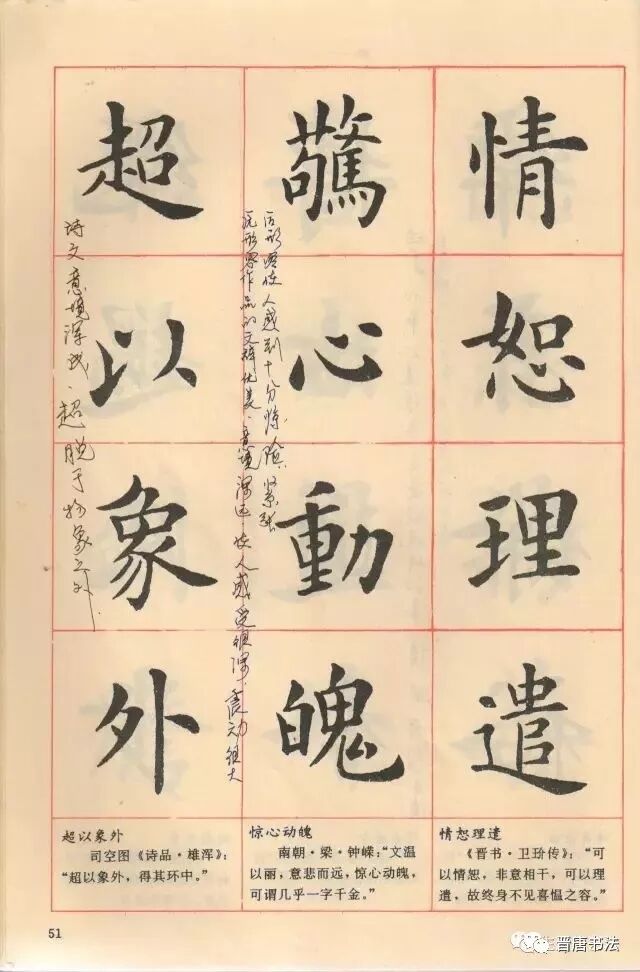 情恕理遣
驚心動魄
后形容使人感到十分惊险紧张
原形容作品的文辞优美、意境深远，使人感受很深，震动很大
超以象外
诗文意境浑成，超脱于物象之外
超以象外
司空图《诗品·雄浑》：
“超以象外，得其环中。”
惊心动魄
南朝·梁·钟嵘：“文温
以丽，意悲而远，惊心动魄，
可谓几乎一字千金。”
情恕理遣
《晋书·卫玠传》：“可
以情恕，非意相干，可以理
遣，故终身不见喜愠之容。”
51
晋唐书法